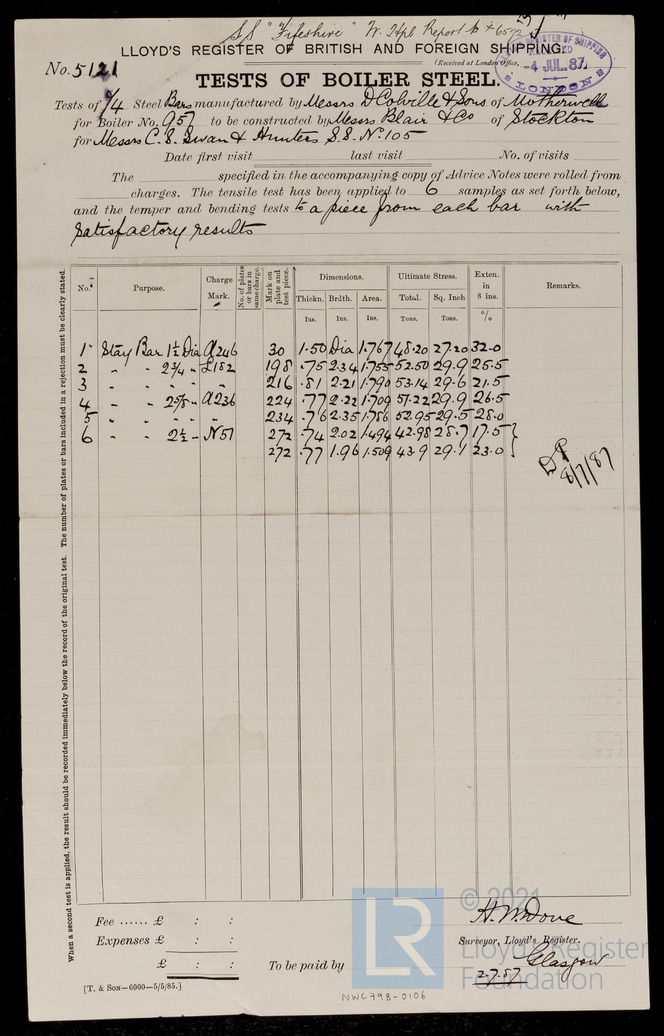 SS "Fifeshire" W. Hpl Report No 6572
LLOYD'S REGISTER OF BRITISH AND FOREIGN SHIPPING.
No. 5121
(Received at London Office,
4 JUL. 87
LONDON
TESTS OF BOILER STEEL.
Tests of Steel Bars manufactured by Messrs D Colville & Sons of Motherwell
for Boiler No. 957 to be constructed by Messrs Blair & Co of Stockton
for Messrs C. S. Swan & Hunters S.S. No. 105
Date first visit last visit No. of visits
The specified in the accompanying copy of Advice Notes were rolled from
charges. The tensile test has been applied to 6 samples as set forth below,
and the temper and bending tests to a piece from each bar with
satisfactory results
No. Purpose. Charge Mark. No. of plates or bars in same charge. Mark on plate and test piece. Dimensions. Ultimate Stress. Exten. in 8 ins. Remarks.
Thickn. Brdth. Area. Total. Sq. Inch
Ins. Ins. Ins. Tons. Tons. %
1 Stay Bar 1½ Dia A246 30 1.50 Dia 1.767 48.20 27.20 32.0
2 " " 2¾ " L182 198 .75 2.34 1.755 52.50 29.9 25.5
3 " " " " 216 .81 2.21 1.790 53.14 29.6 21.5
4 " " 2⅝ " A236 224 .77 2.22 1.709 51.22 29.9 26.5
5 " " " " 234 .76 2.35 1.786 52.95 29.5 28.0
6 " " 2½ " N51 272 .74 2.02 1.494 42.98 28.7 17.5
272 .77 1.96 1.509 43.9 29.1 23.0
8/7/87
When a second test is applied, the result should be recorded immediately below the record of the original test. The number of plates or bars included in a rejection must be clearly stated.
Fee ...... £ : :
Expenses £ : :
£ : :
To be paid by
H. W. Dove
Surveyor, Lloyd's Register.
Glasgow
2.7.87
[T. & Son—6000—5/5/85.]
© 2021
LR
Lloyd's Register
Foundation
NWC798-0106